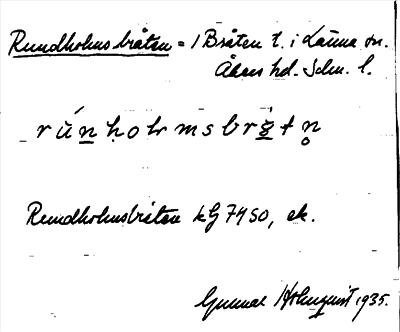 Rundholmsbråten = 1 Bråten t. i Länna sn.
Åkers hd. Södm. l.
rúnholmsbrå̱tn̥
Rundholmsbråten kG 7450, ek.
Gunnar Holmquist 1935.